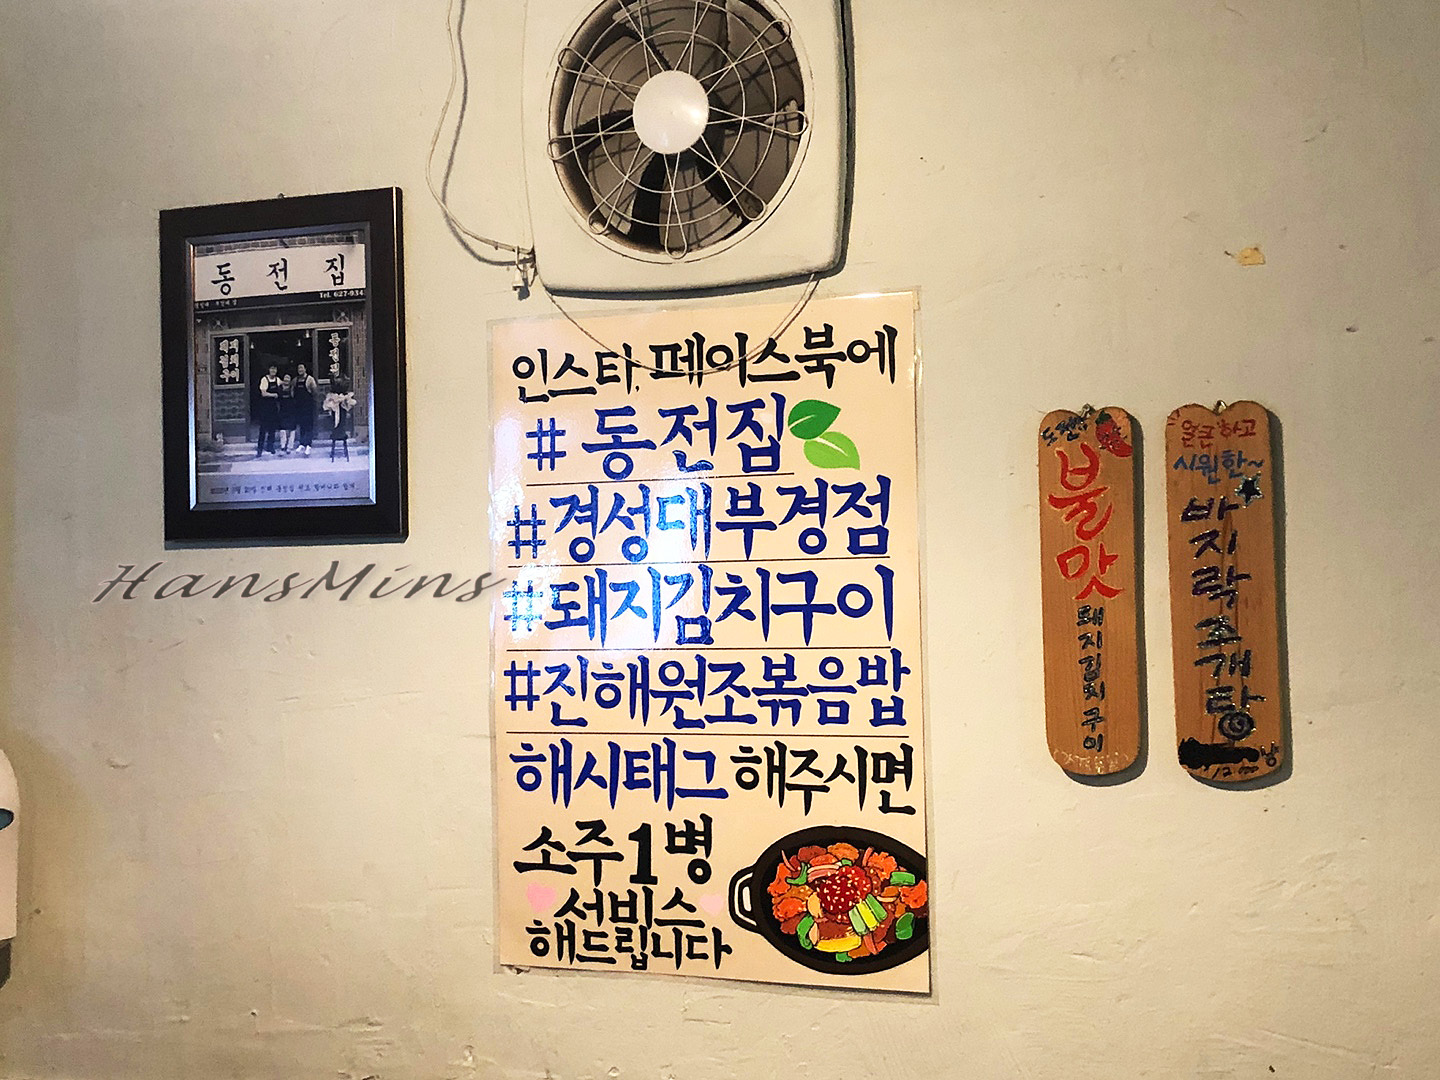 동전집
Tel. 627-934
HansMins
인스타, 페이스북에
# 동전집
#경성대부경점
#돼지김치구이
#진해원조볶음밥
해시태그 해주시면
소주1병
서비스
해드립니다
불맛
돼지김치구이
얼큰하고
시원한~
바지락조개탕